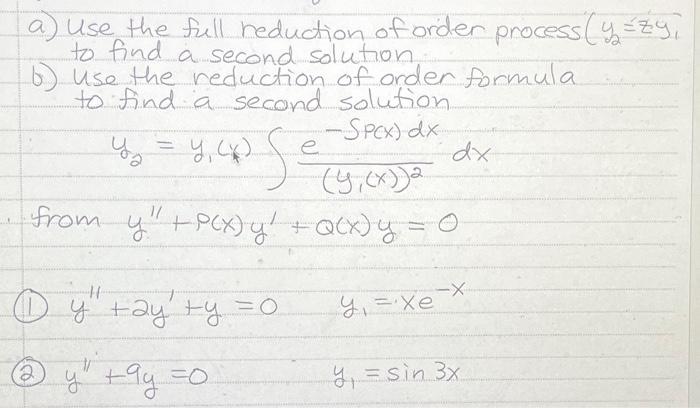 a) use the full reduction of order process (y₂ = zy₁
to find a second solution.
b) use the reduction of order formula
to find a second solution
y₂ = y₁(x) ∫ e^(-∫P(x) dx) / (y₁(x))² dx
from y'' + P(x) y' + Q(x) y = 0
① y'' + 2y' + y = 0 y₁ = xe^(-x)
② y'' + 9y = 0 y₁ = sin 3x